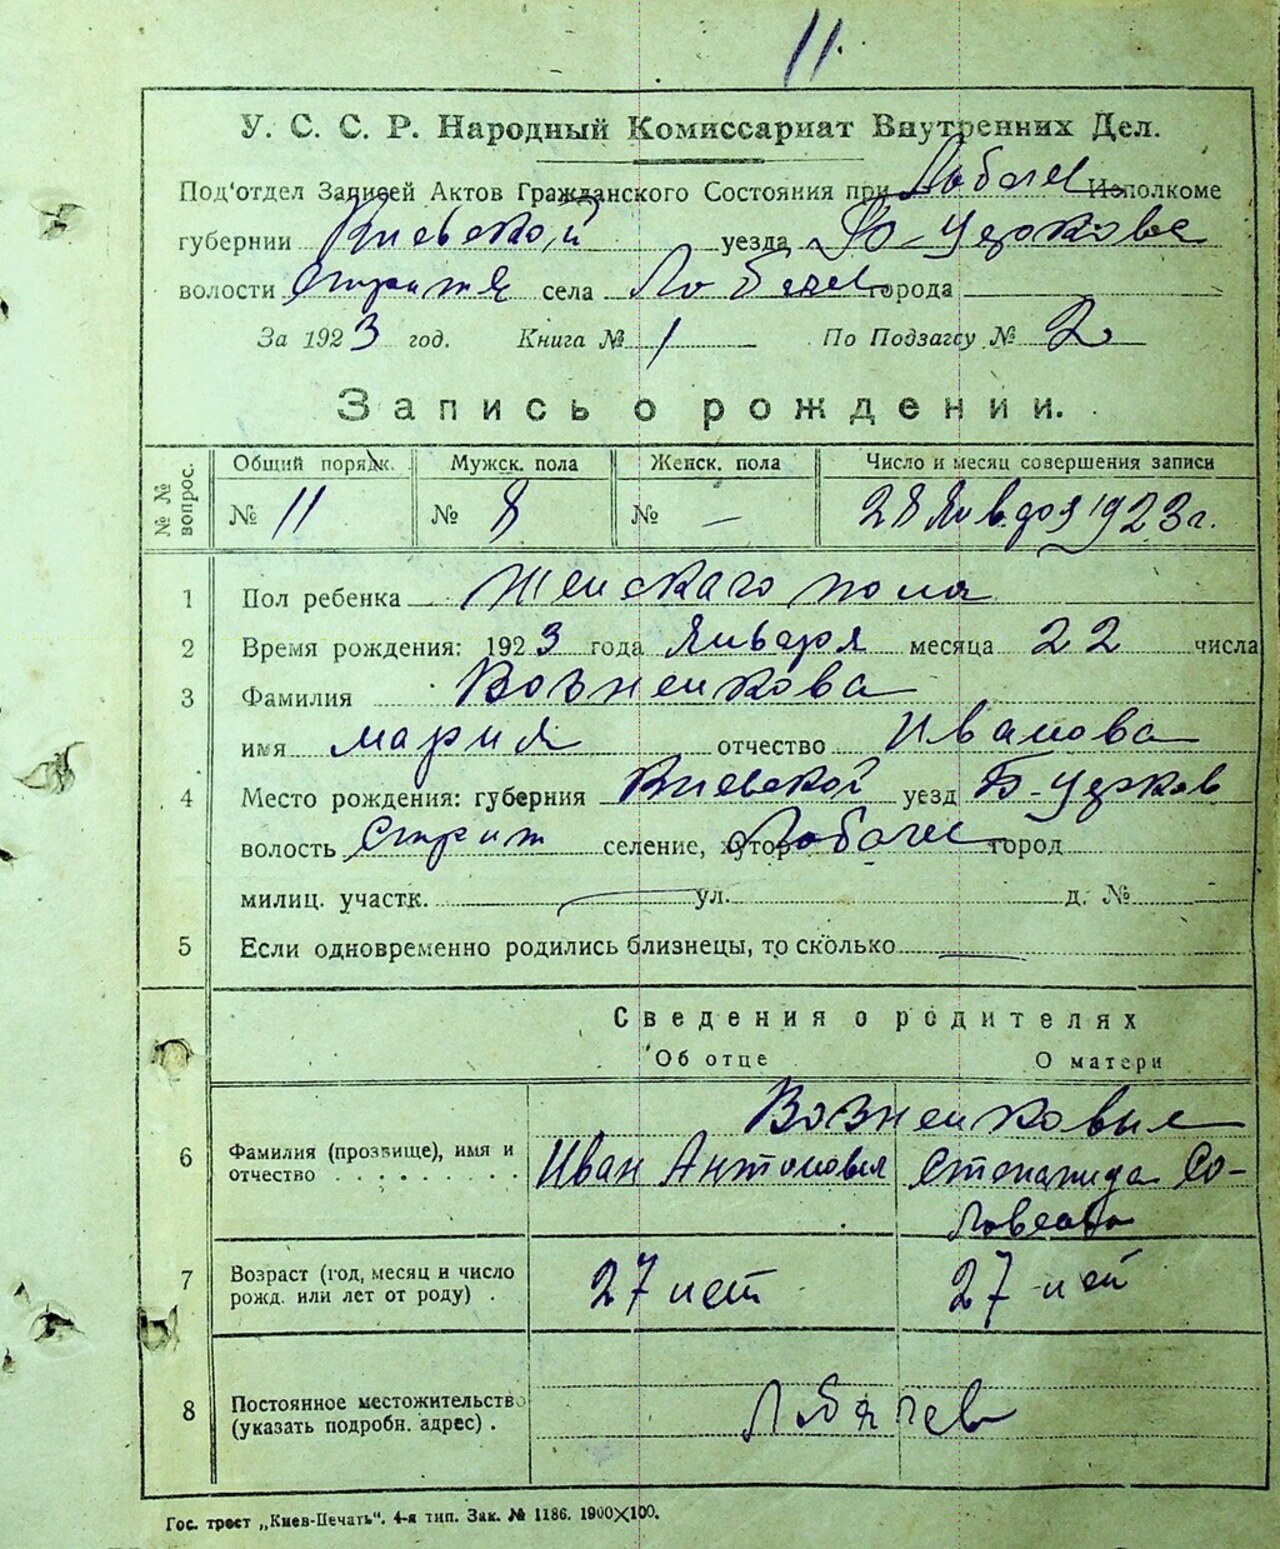 11.
У. С. С. Р. Народный Комиссариат Внутренних Дел.
Под'отдел Записей Актов Гражданского Состояния при Лобачев Исполкоме
губернии Киевской уезда Б-Церковс
волости Стриж села Лобачев города
За 1923 год. Книга № 1 По Подзагсу № 2
Запись о рождении.
№ № вопрос.
Общий порядк. Мужск. пола Женск. пола Число и месяц совершения записи
№ 11 № 8 № — 28 Января 1923 г.
1 Пол ребенка Женскаго пола
2 Время рождения: 1923 года Января месяца 22 числа
3 Фамилия Возненкова
имя Мария отчество Иванова
4 Место рождения: губерния Киевской уезд Б-Церков
волость Стриж селение, хутор Лобачев город
милиц. участк. — ул. д. №
5 Если одновременно родились близнецы, то сколько —
Сведения о родителях
Об отце О матери
Возненковые
6 Фамилия (прозвище), имя и отчество Иван Антоновыя Степанида Со-
ловеова
7 Возраст (год, месяц и число рожд. или лет от роду) . 27 лет 27 лет
8 Постоянное местожительство (указать подробн. адрес) . Лобачев
Гос. трест „Киев-Печать“. 4-я тип. Зак. № 1186. 1900×100.